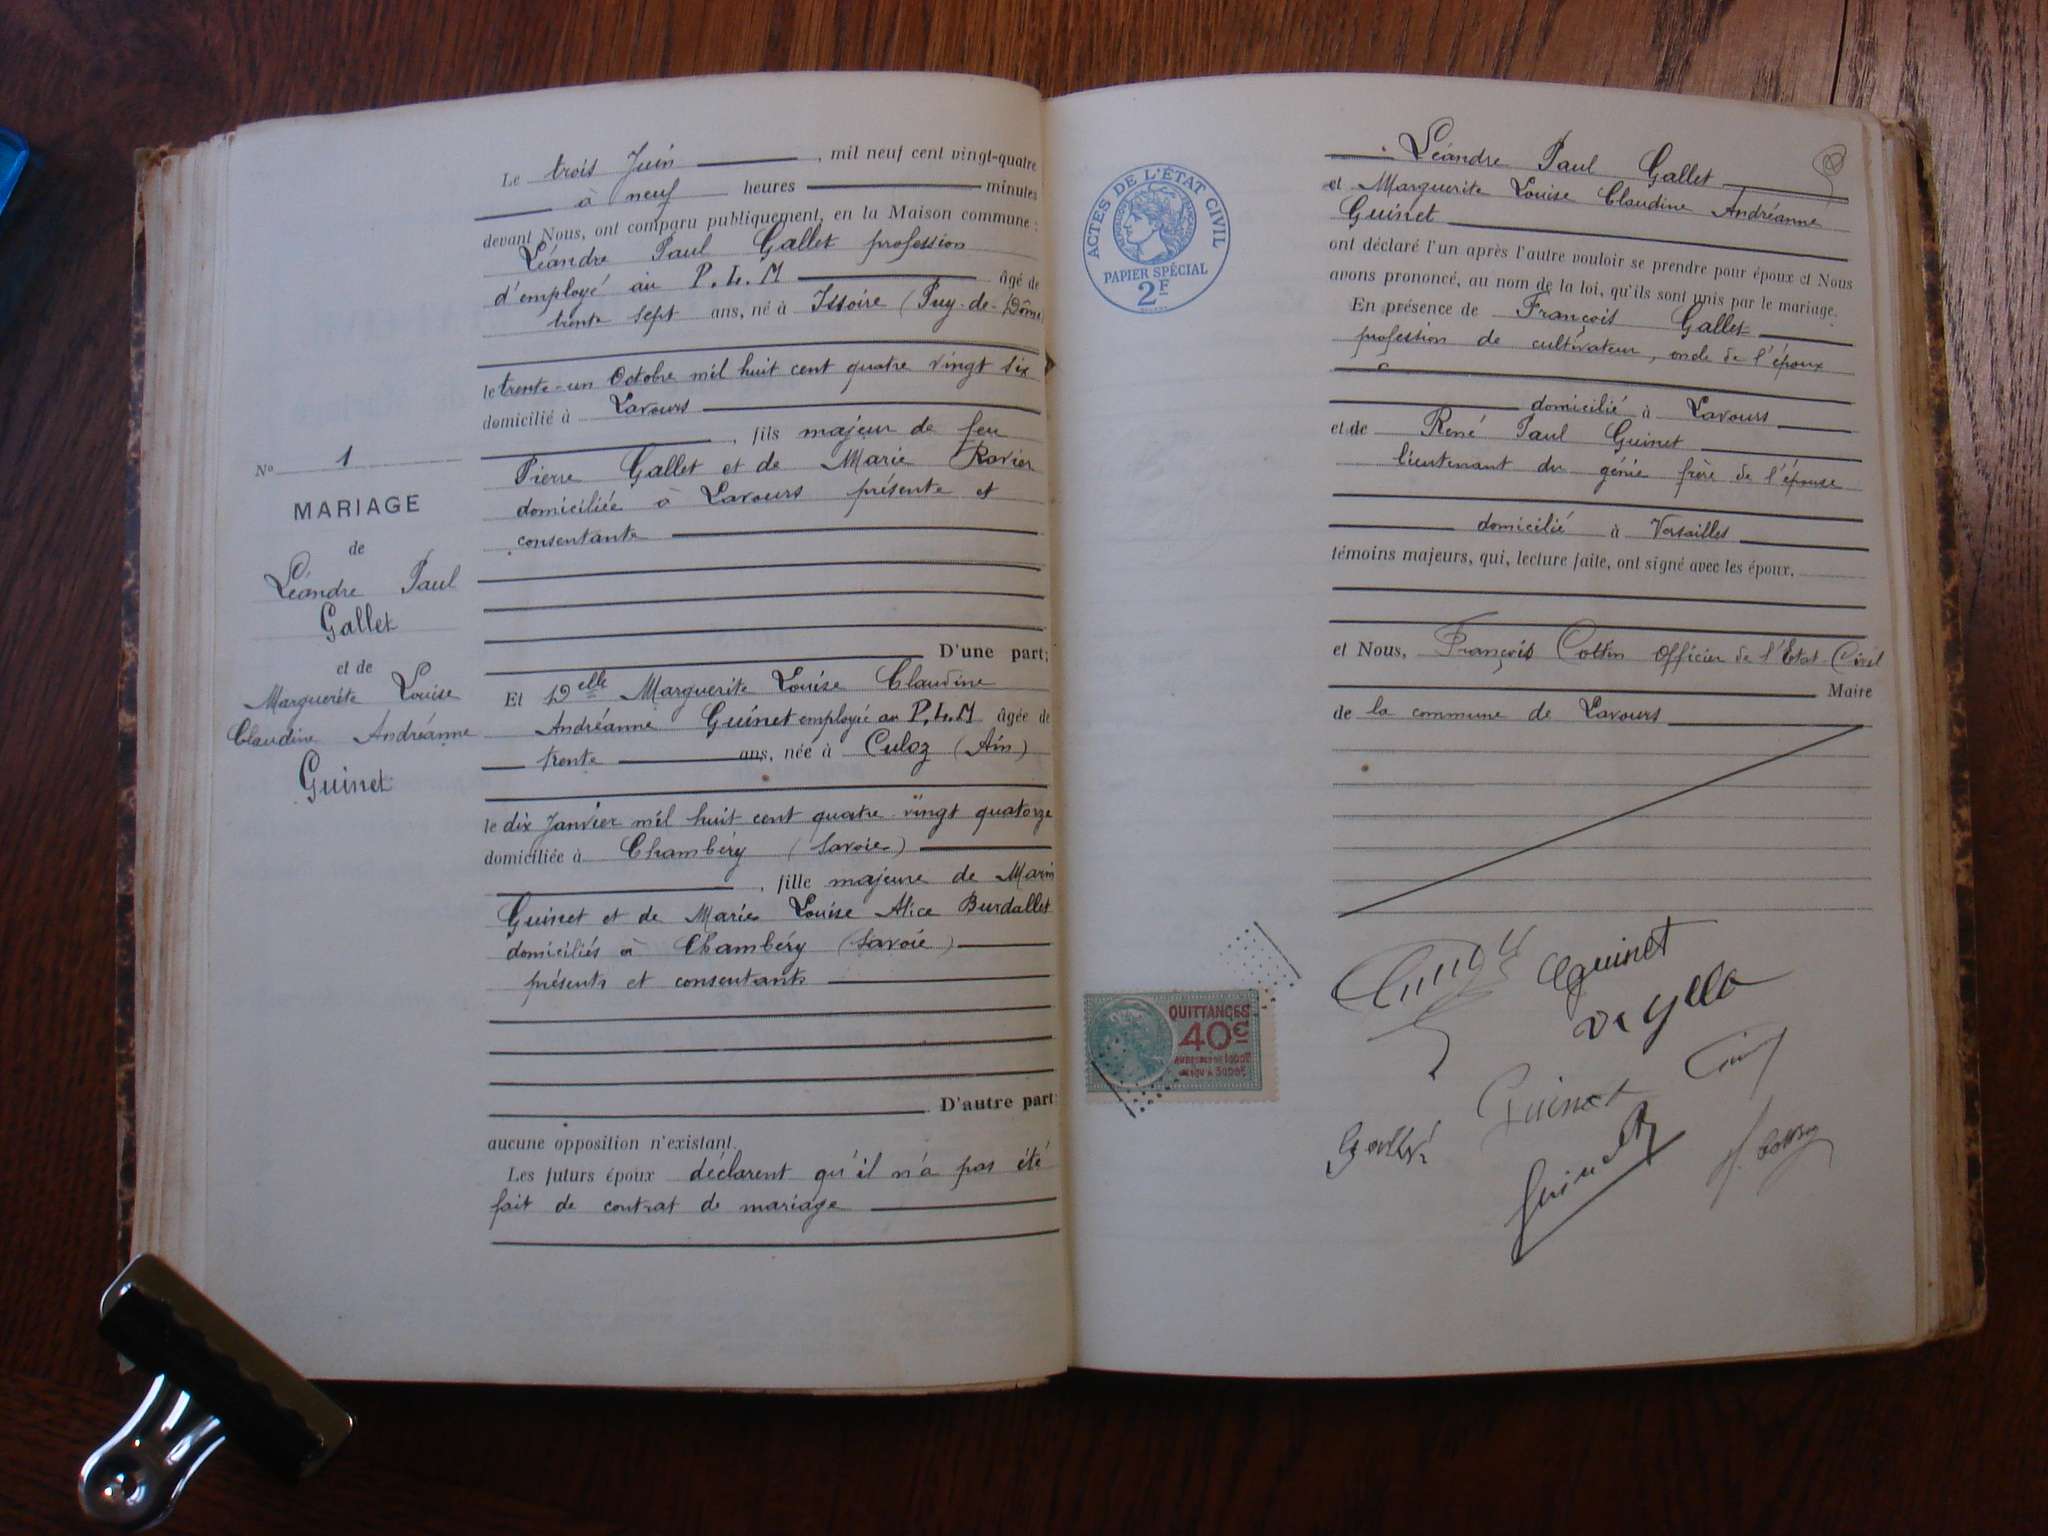 Le trois Juin, mil neuf cent vingt-quatre
à neuf heures minutes
devant Nous, ont comparu publiquement, en la Maison commune :
Léandre Paul Gallet profession
d'employé au P. L. M âgé de
trente sept ans, né à Issoire (Puy-de-Dôme
le trente-un Octobre mil huit cent quatre vingt six
domicilié à Lavours
, fils majeur de feu
Pierre Gallet et de Marie Ravier
domiciliée à Lavours présente et
consentante
D'une part;
Et Delle Marguerite Louise Claudine
Andréanne Guinet employée au P.L.M âgée de
trente ans, née à Culoz (Ain)
le dix Janvier mil huit cent quatre vingt quatorze
domiciliée à Chambéry (Savoie)
, fille majeure de Marin
Guinet et de Marie Louise Alice Burdallet
domiciliés à Chambéry (Savoie)
présents et consentants
D'autre part;
aucune opposition n'existant
Les futurs époux déclarent qu'il n'a pas été
fait de contrat de mariage
No 1
MARIAGE
de
Léandre Paul
Gallet
et de
Marguerite Louise
Claudine Andréanne
Guinet
ACTES DE L'ÉTAT CIVIL
PAPIER SPÉCIAL
2F
Léandre Paul Gallet
et Marguerite Louise Claudine Andréanne
Guinet
ont déclaré l'un après l'autre vouloir se prendre pour époux et Nous
avons prononcé, au nom de la loi, qu'ils sont unis par le mariage.
En présence de François Gallet
profession de cultivateur, oncle de l'époux
domicilié à Lavours
et de René Paul Guinet
lieutenant du génie frère de l'épouse
domicilié à Versailles
témoins majeurs, qui, lecture faite, ont signé avec les époux,
et Nous, François Cottin Officier de l'Etat-Civil
Maire
de la commune de Lavours
Guinet
Guinet
QUITTANCES
40c